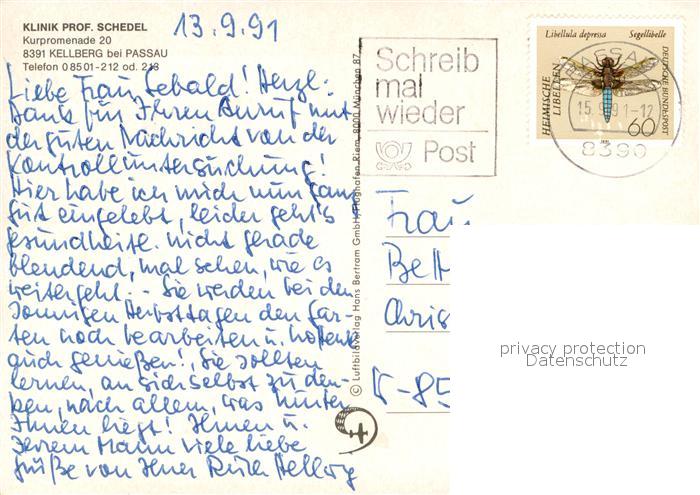 KLINIK PROF. SCHEDEL
Kurpromenade 20
8391 KELLBERG bei PASSAU
Telefon 0 85 01-212 od. 213
13.9.91
Liebe Frau Sebald! Herzl.
Dank für Ihren Anruf mit
der guten Nachricht von der
Kontrolluntersuchung!
Hier habe ich mich nun ganz
gut eingelebt, leider geht's
gesundheitl. nicht gerade
blendend, mal sehen, wie es
weitergeht. - Sie werden bei den
sonnigen Herbsttagen den Gar-
ten noch bearbeiten u. hoffentl.
auch genießen! Sie sollten
lernen, an sich selbst zu den-
ken, nach allem, was hinter
Ihnen liegt! Ihnen u.
Ihrem Mann viele liebe
Grüße von Ihrer Ruth Hellwig
© Luftbildverlag Hans Bertram GmbH, Flughafen Riem, 8000 München 87
Schreib
mal
wieder
Post
Libellula depressa Segellibelle
HEIMISCHE
LIBELLEN
DEUTSCHE BUNDESPOST
60
PASSAU
15.9.91-12
8390
Frau
Bett
Chris
V-85
privacy protection
Datenschutz